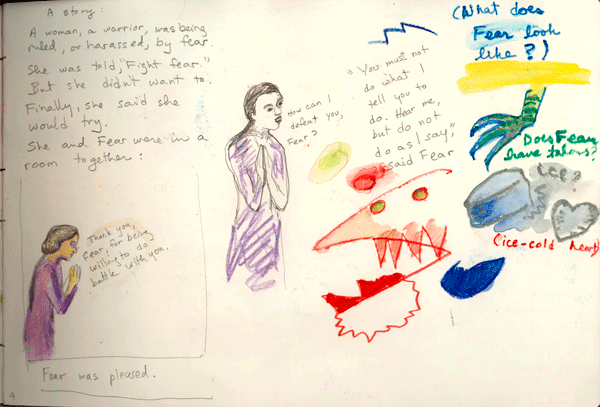 A story:
A woman, a warrior, was being
ruled, or harassed, by fear.
She was told, "Fight fear."
But she didn't want to.
Finally, she said she
would try.
She and Fear were in a
room together:
Thank you,
Fear, for being
willing to do
battle with you.
Fear was pleased.
4
How can I
defeat you,
Fear?
"You must not
do what I
tell you to
do. Hear me,
but do not
do as I say,"
said Fear
(What does
Fear look
like?)
Does Fear
have talons?
ICE?
(ice-cold heart)